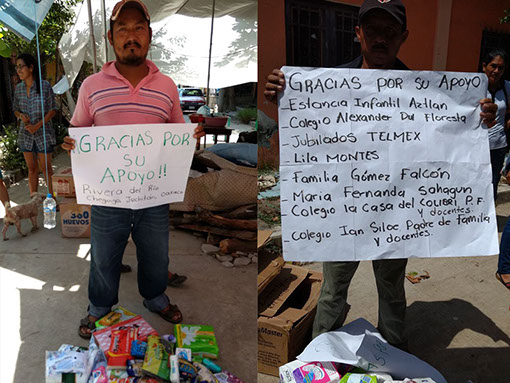 ¡GRACIAS POR
SU
APOYO!!
Rivera del Río
Cheguigo Juchitán oaxaca
360
HUEVOS
GRACIAS POR SU APOYO
- Estancia Infantil Aztlan
- Colegio Alexander Dul Floresta
- Jubilados TELMEX
- Lila MONTES
- Familia Gómez Falcón
- Maria Fernanda Sahagun
- Colegio la casa del COLIBRI P.F.
y docentes.
- Colegio Ian Siloe Padre de familia
y docentes.